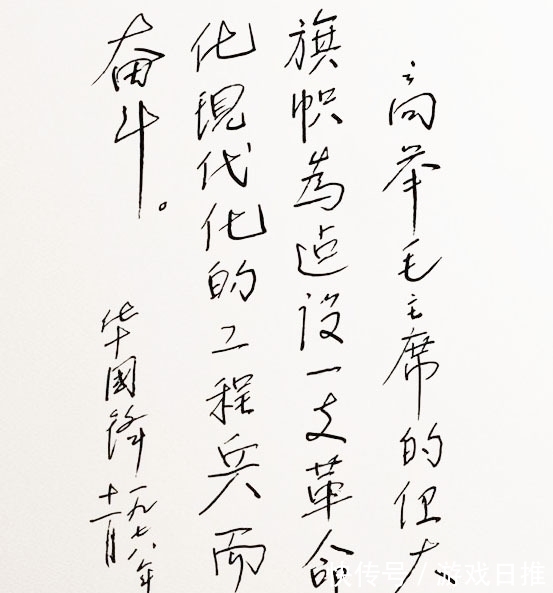 高举毛主席的伟大
旗帜為迠设一支革命
化現代化的工程兵而
奋斗。
华國锋 一九七八年
十一月
快传号 / 游戏日推